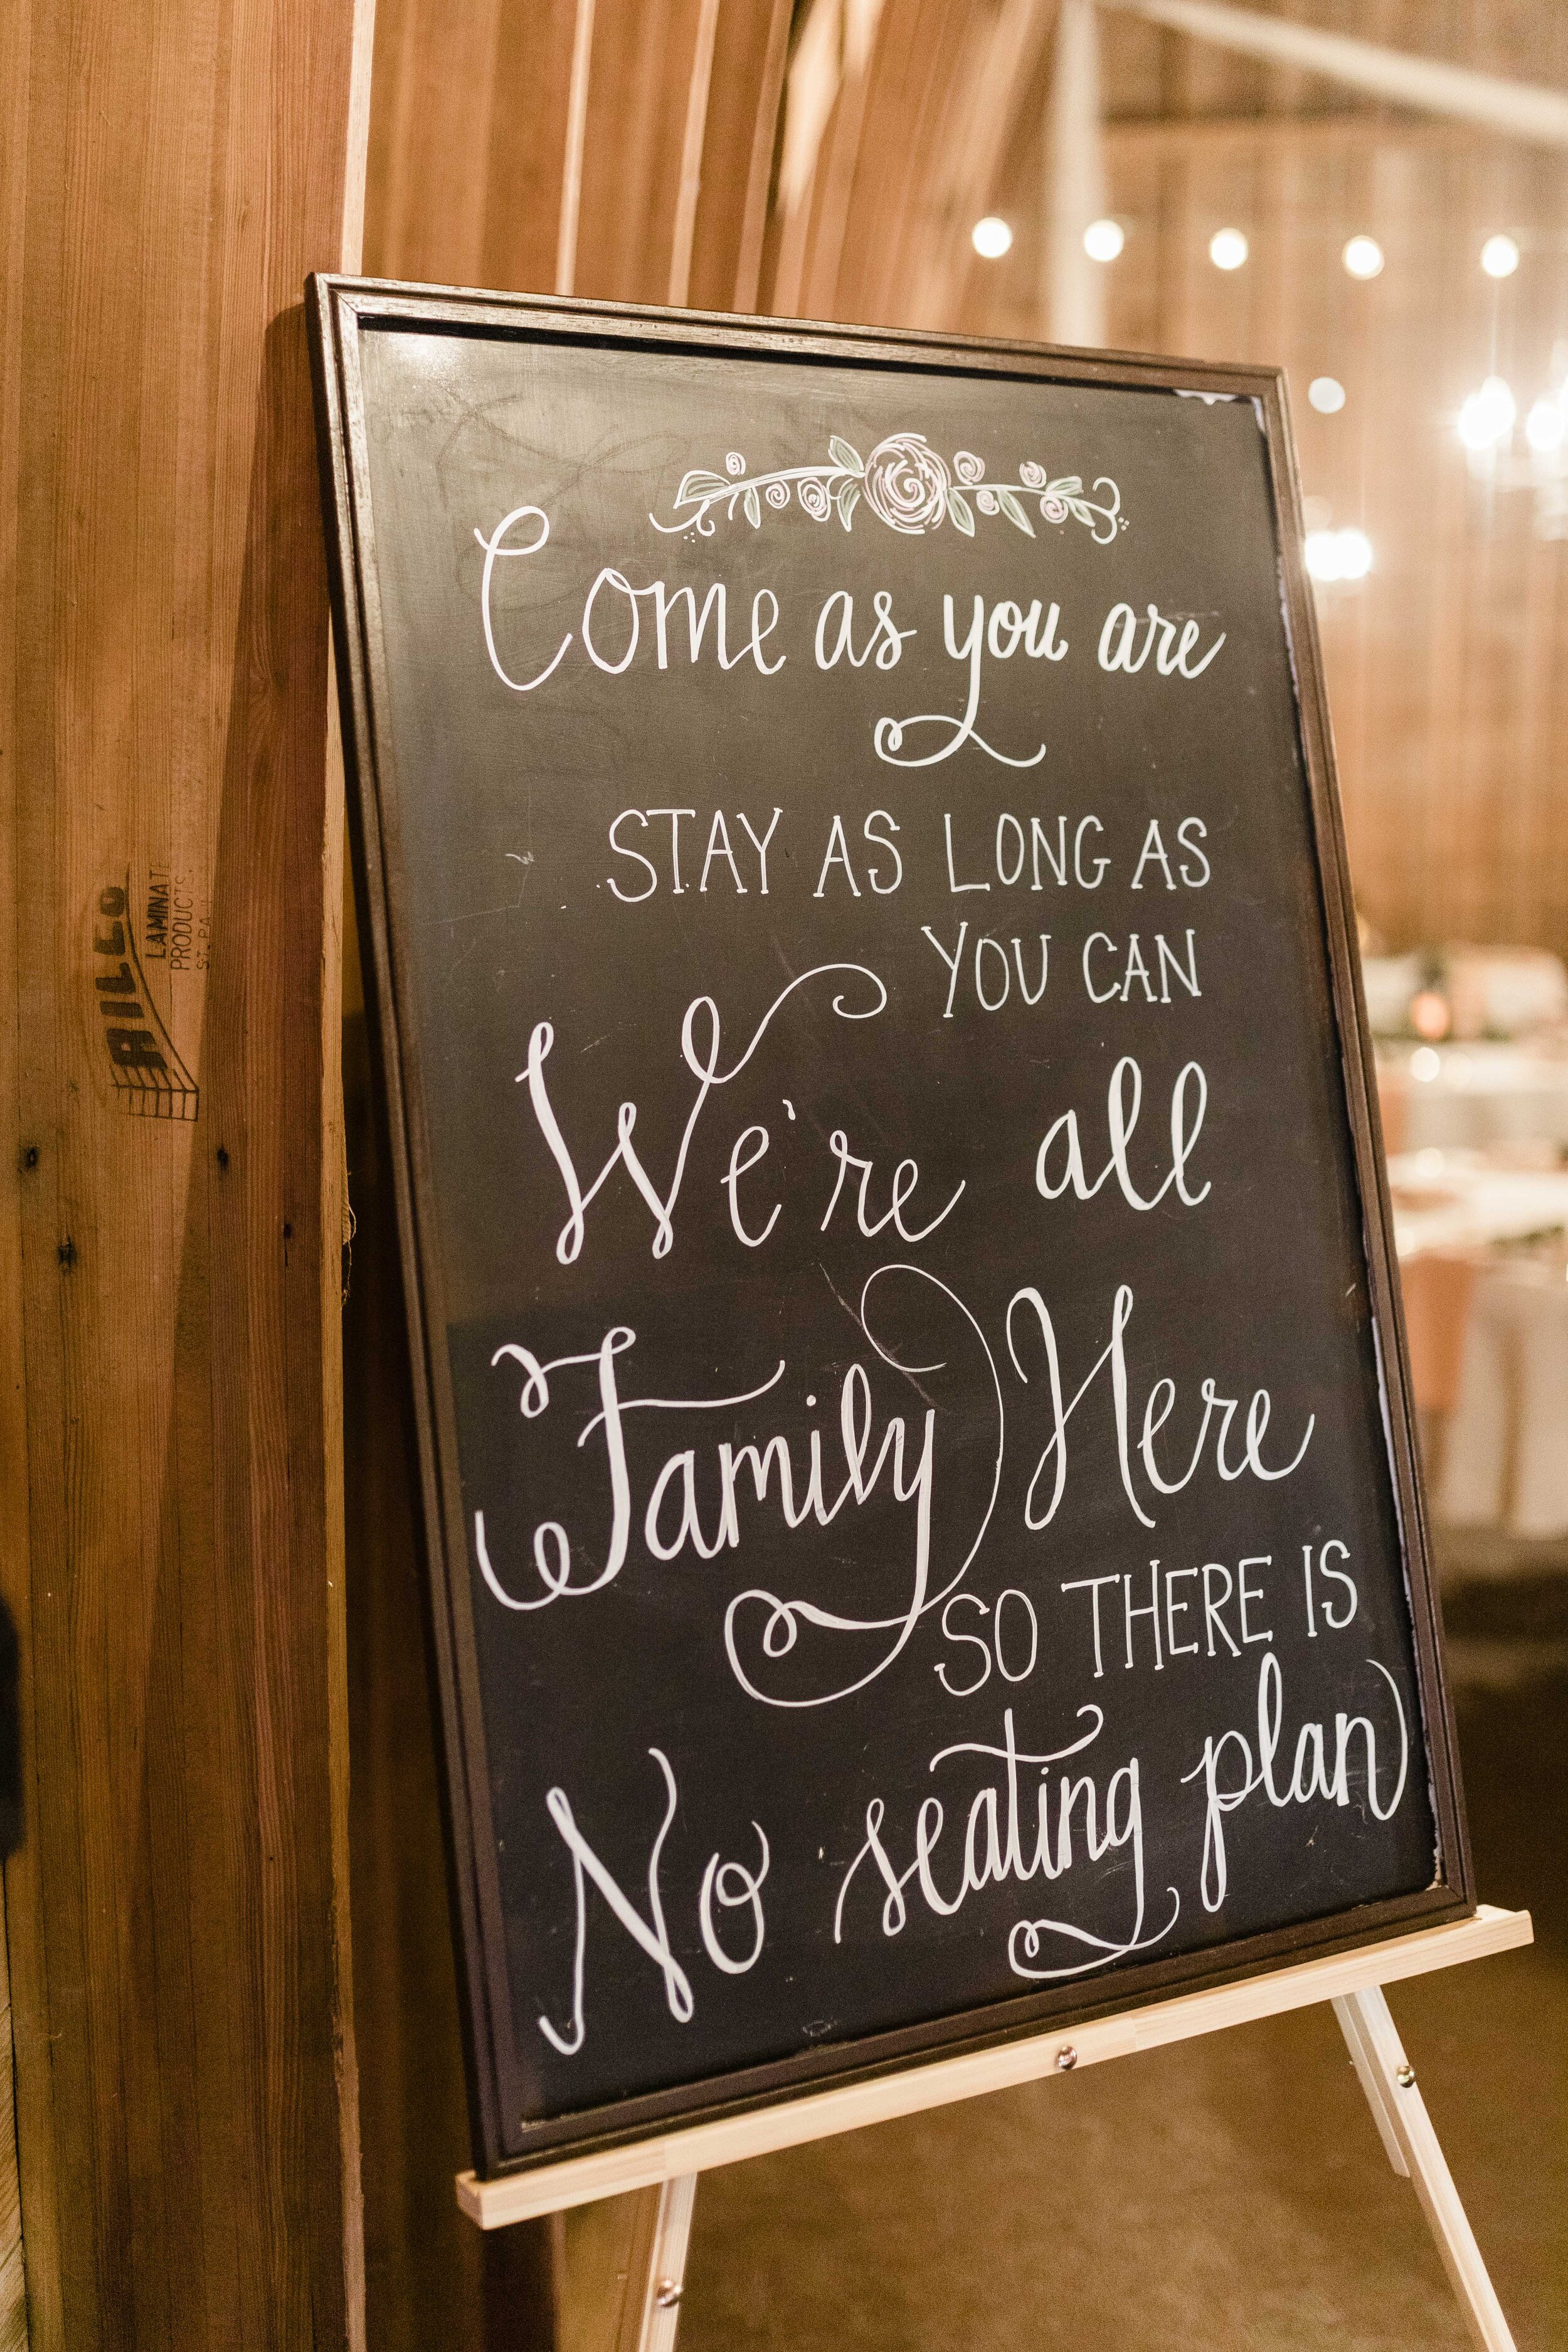 Come as you are
STAY AS LONG AS
YOU CAN
We're all
Family Here
SO THERE IS
No seating plan
RILCO
LAMINATED
PRODUCTS,
ST. PAUL